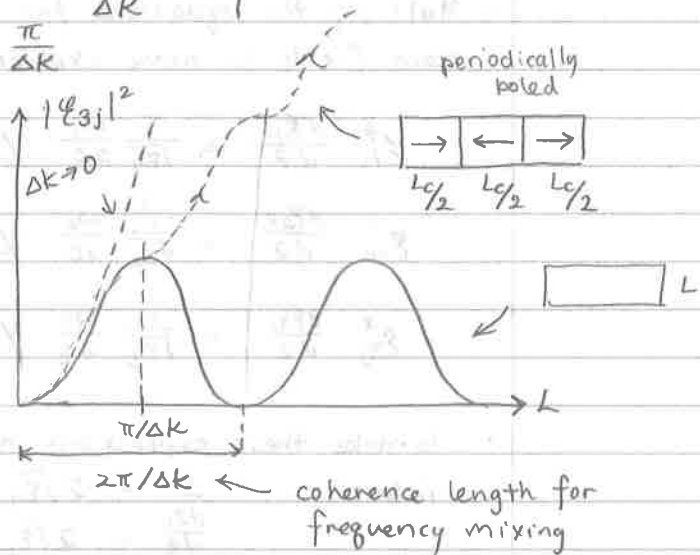 ΔK
π/ΔK
|ℰ3j|²
ΔK→0
periodically
poled
→ ← →
Lc/2 Lc/2 Lc/2
L
L
π/ΔK
2π/ΔK ← coherence length for
frequency mixing